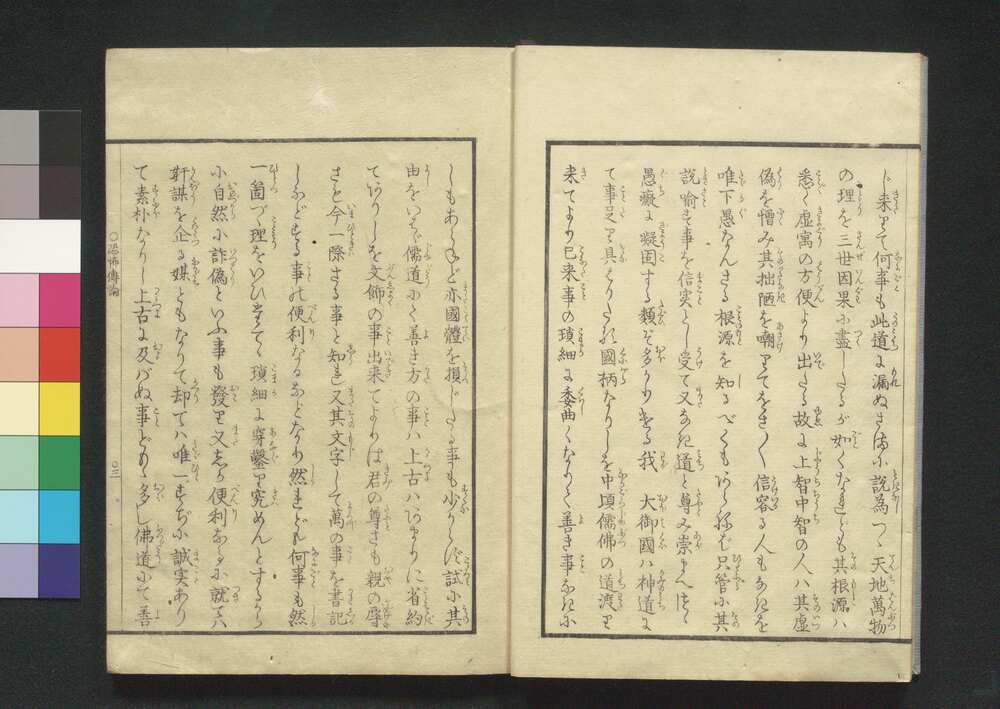 ト来りて何事も此道に漏ぬさまに説為つゝ天地萬物
の理を三世因果に盡したるが如くなれども其根源ハ
悉く虚寓の方便より出たる故に上智中智の人ハ其虚
偽を憎み其拙陋を嘲りてをさ〳〵信容る人もなきを
唯下愚なんさる根源を知るべくもあらねば只管に其
説喩す事を信実とし受て又なき道と尊み崇まへつゝ
愚癡に凝固する類ぞ多かりける我 大御國ハ神道に
て事足り具そりたる國柄なりしを中頃儒佛の道渡り
来てより已来事の瑣細に委曲くなりて善き事なきに
しもあらねど亦國體を損じたる事も少からず試に其
由をいはゞ儒道にて善き方の事ハ上古ハあまりに省約
てありしを文飾の事出来てよりは君の尊さも親の厚
さも今一際さる事と知れ又其文字して萬の事を書記
しなどする事の便利なるなどなり然れども何事も然
一箇づゝ理をいひまてゝ瑣細に穿鑿り究めんとするから
に自然に詐偽といふ事も發り又志か便利なるに就てハ
奸謀を企る媒ともなりて却てハ唯一すぢに誠実あり
て素朴なりし上古に及バぬ事どもゝ多し佛道にて善
○恐怖傳論
○三